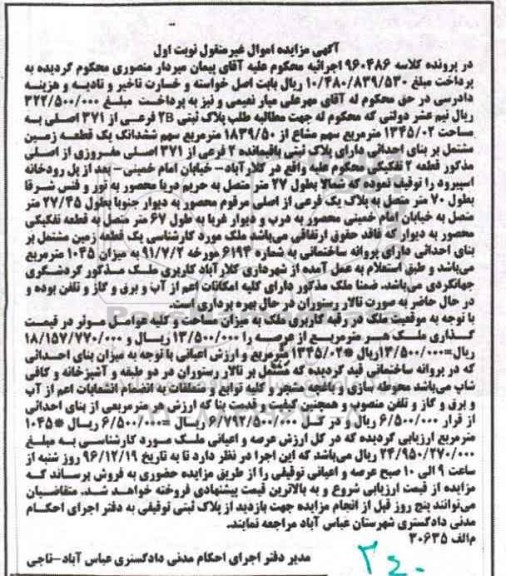 آگهی مزایده اموال غیر منقول نوبت اول
در پرونده کلاسه ۹۶۰۴۸۶ اجرائیه محکوم علیه آقای پیمان میردار منصوری محکوم گردیده به
پرداخت مبلغ ۱۰/۴۸۰/۸۳۹/۵۳۰ ریال بابت اصل خواسته و خسارت تاخیر و تادیه و هزینه
دادرسی در حق محکوم له آقای مهرعلی میار نعیمی و نیز به پرداخت مبلغ ۳۲۲/۵۰۰/۰۰۰
ریال نیم عشر دولتی که محکوم له جهت مطالبه طلب پلاک ثبتی ۲B فرعی از ۳۷۱ اصلی به
مساحت ۱۳۴۵/۰۲ مترمربع سهم مشاع از ۱۸۳۹/۵۰ مترمربع سهم ششدانگ یک قطعه زمین
مشتمل بر بنای احداثی دارای پلاک ثبتی باقیمانده ۲ فرعی از ۳۷۱ اصلی مفروزی از اصلی
مذکور قطعه ۲ تفکیکی محکوم علیه واقع در کلارآباد- خیابان امام خمینی- بعد از پل رودخانه
اسپیرود را توقیف نموده که شمالا بطول ۲۷ متر متصل به حریم دریا محصور به تور و فنس شرقا
بطول ۷۰ متر متصل به پلاک یک فرعی از اصلی مرقوم محصور به دیوار جنوبا بطول ۲۷/۴۵ متر
متصل به خیابان امام خمینی محصور به درب و دیوار غربا به طول ۶۷ متر متصل به قطعه تفکیکی
محصور به دیوار که فاقد حقوق ارتفاقی می‌باشد ملک مورد کارشناسی یک قطعه زمین مشتمل بر
بنای احداثی دارای پروانه ساختمانی به شماره ۶۱۹۴ مورخه ۹۱/۷/۲ به میزان ۱۰۴۵ مترمربع
می‌باشد و طبق استعلام به عمل آمده از شهرداری کلارآباد کاربری ملک مذکور گردشگری
جهانگردی می‌باشد. ضمنا ملک مذکور دارای کلیه امکانات اعم از آب و برق و گاز و تلفن بوده و
در حال حاضر به صورت تالار رستوران در حال بهره برداری است.
با توجه به موقعیت ملک در رقبه کاربری ملک به میزان مساحت و کلیه عوامل موثر در قیمت
گذاری ملک هر مترمربع از عرصه را ۱۳/۵۰۰/۰۰۰ ریال و ۱۸/۱۵۷/۷۷۰/۰۰۰
ریال=۱۳/۵۰۰/۰۰۰ریال *۱۳۴۵/۰۲ مترمربع و ارزش اعیانی با توجه به میزان بنای احداثی
که در پروانه ساختمانی قید گردیده که مشتمل بر تالار رستوران در دو طبقه و آشپزخانه و کافی
شاپ می‌باشد محوطه سازی و باغچه مشجر و کلیه توابع و متعلقات به انضمام انشعابات اعم از آب
و برق و گاز و تلفن منصوب و همچنین کیفیت و قدمت بنا که ارزش هر مترمربعی از بنای احداثی
از قرار ۶/۵۰۰/۰۰۰ ریال و در کل ۶/۷۹۲/۵۰۰/۰۰۰ ریال =۶/۵۰۰/۰۰۰ ریال *۱۰۴۵
مترمربع ارزیابی گردیده که در کل ارزش عرصه و اعیانی ملک مورد کارشناسی به مبلغ
۲۴/۹۵۰/۲۷۰/۰۰۰ ریال می‌باشد که این اجرا در نظر دارد تا به تاریخ ۹۶/۱۲/۱۹ روز شنبه از
ساعت ۹ الی ۱۰ صبح عرصه و اعیانی توقیفی را از طریق مزایده حضوری به فروش برساند که
مزایده از قیمت ارزیابی شروع و به بالاترین قیمت پیشنهادی فروخته خواهد شد. متقاضیان
می‌توانند پنج روز قبل از انجام مزایده جهت بازدید از پلاک ثبتی توقیفی به دفتر اجرای احکام
مدنی دادگستری شهرستان عباس آباد مراجعه نمایند.
م‌الف ۳۰۶۳۵
مدیر دفتر اجرای احکام مدنی دادگستری عباس آباد-تاجی